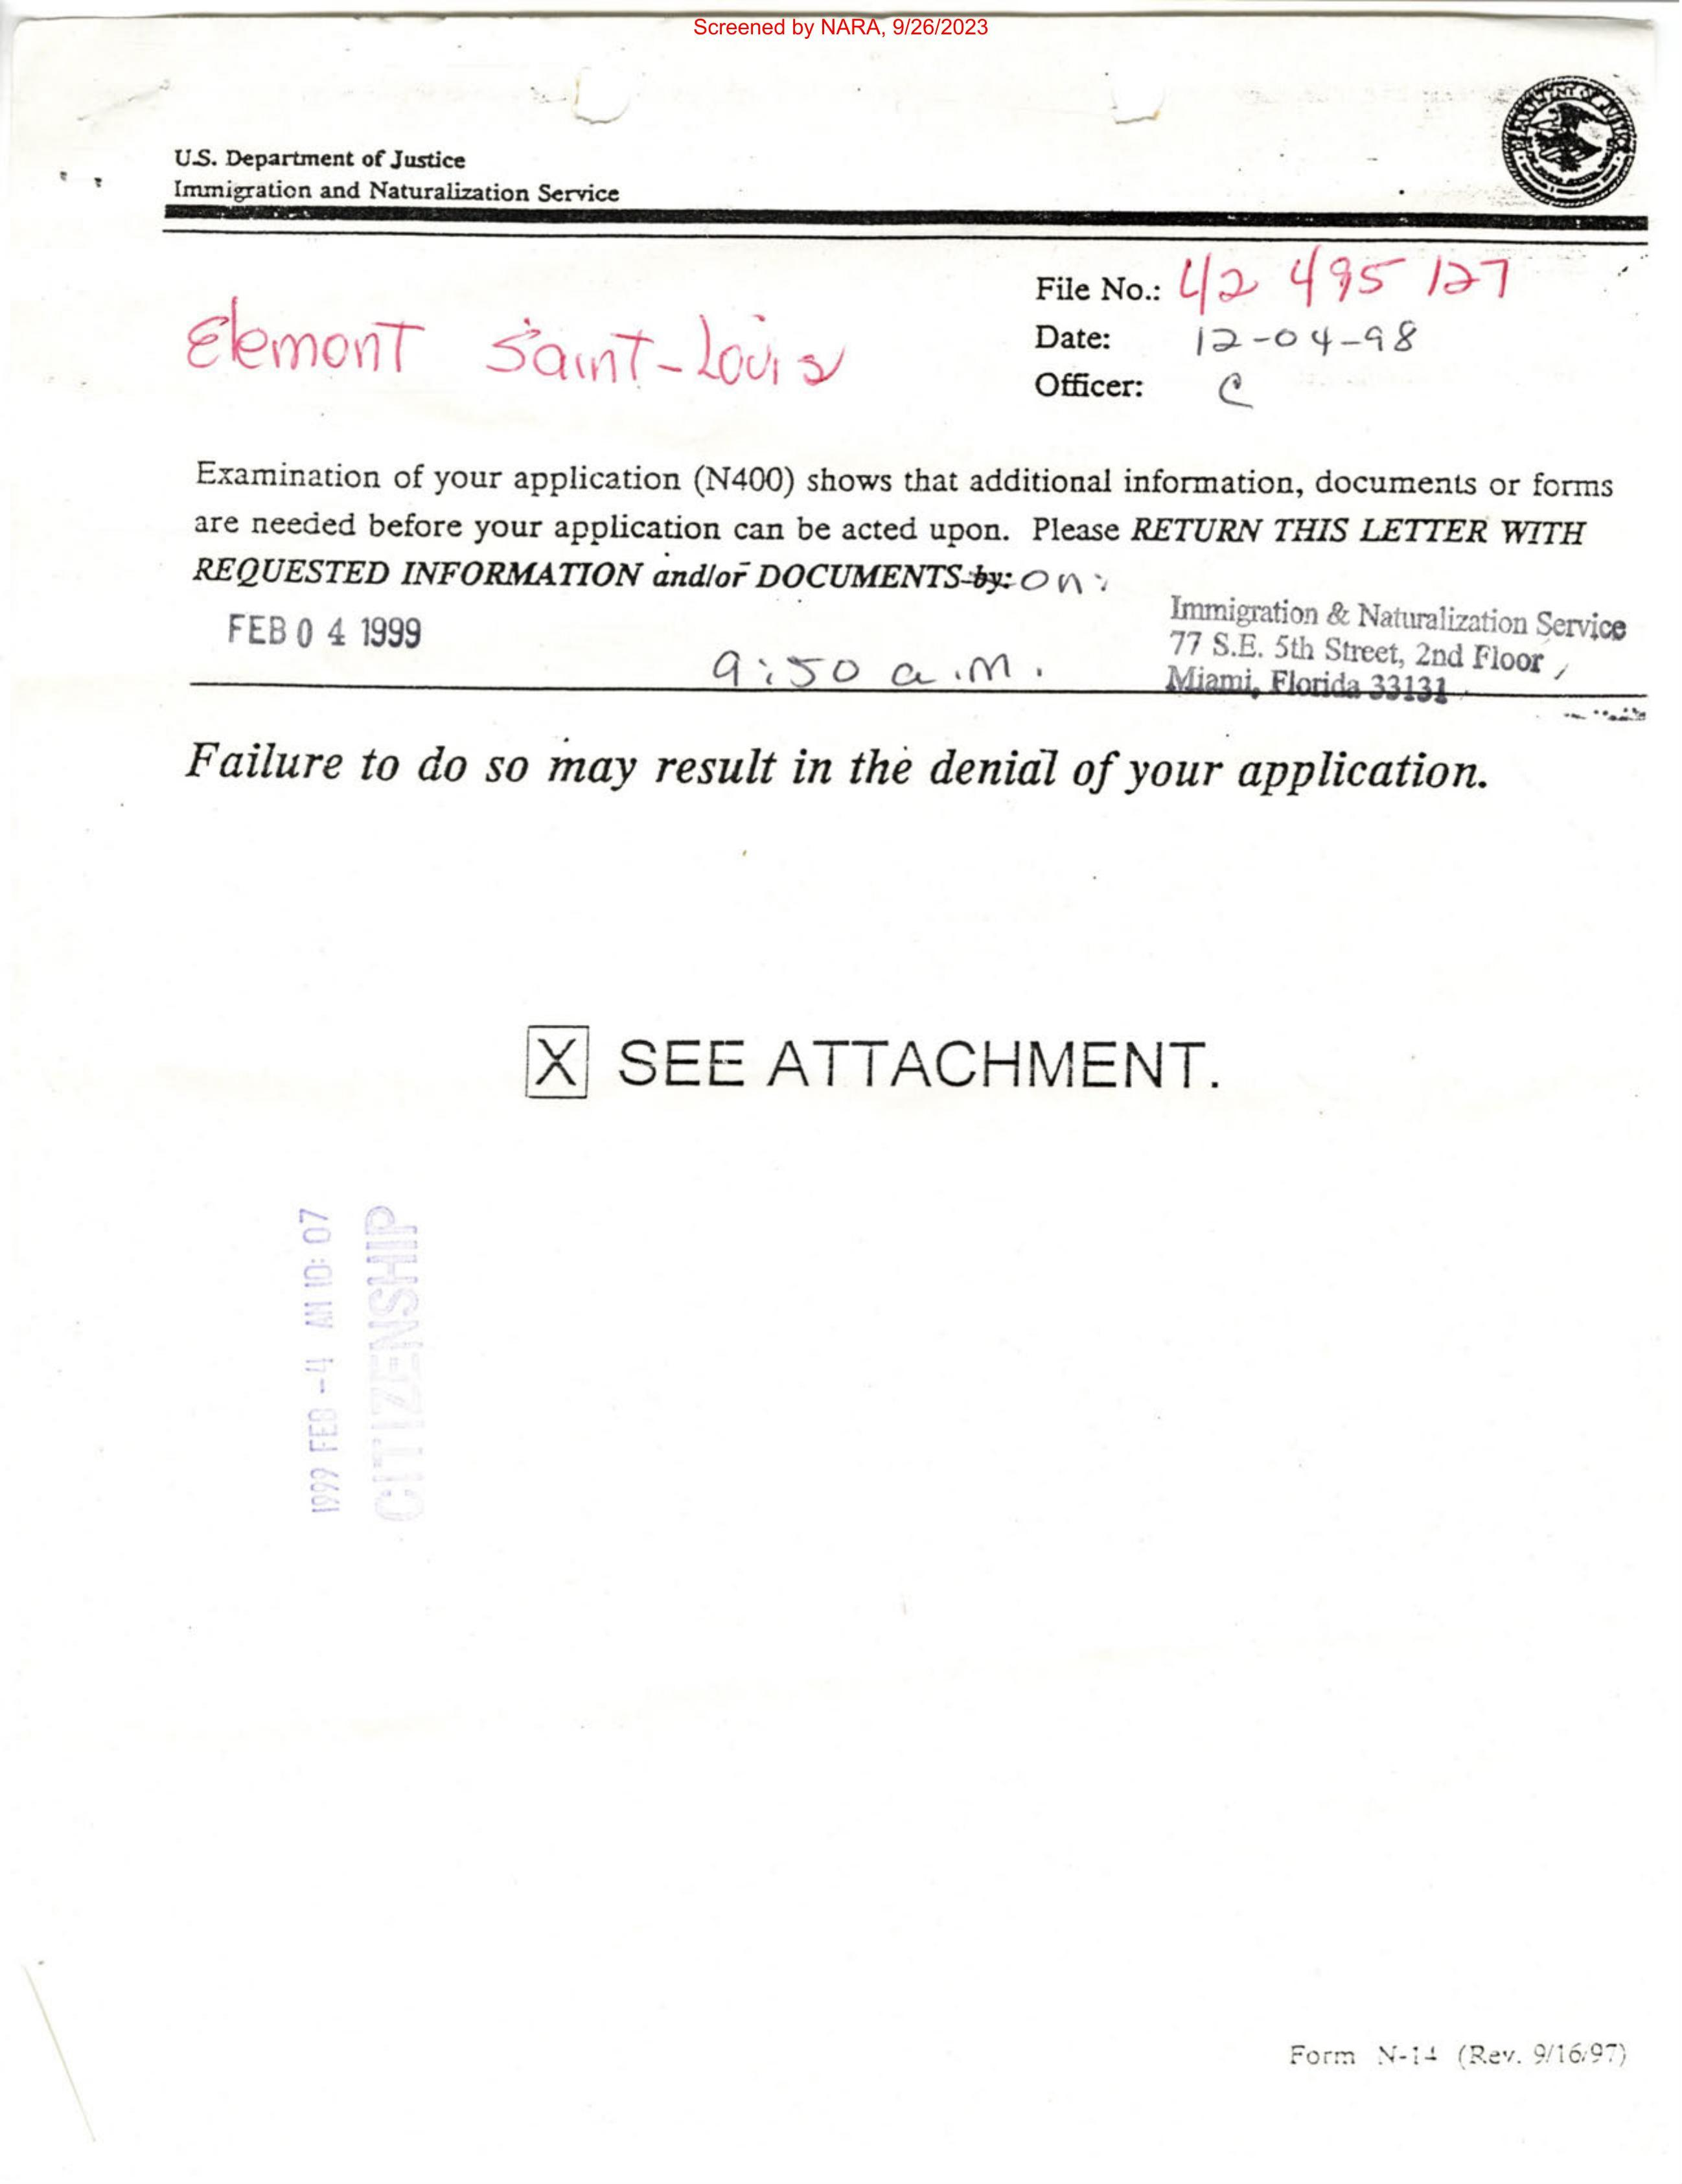 Screened by NARA, 9/26/2023
U.S. Department of Justice
Immigration and Naturalization Service
File No.: 42 495 127
Elemont Saint-Louis
Date: 12-04-98
Officer: C
Examination of your application (N400) shows that additional information, documents or forms
are needed before your application can be acted upon. Please RETURN THIS LETTER WITH
REQUESTED INFORMATION and/or DOCUMENTS by: on:
FEB 04 1999
9:50 a.m.
Immigration & Naturalization Service
77 S.E. 5th Street, 2nd Floor
Miami, Florida 33131
Failure to do so may result in the denial of your application.
X SEE ATTACHMENT.
1999 FEB -4 AM 10: 07
CITIZENSHIP
Form N-14 (Rev. 9/16/97)